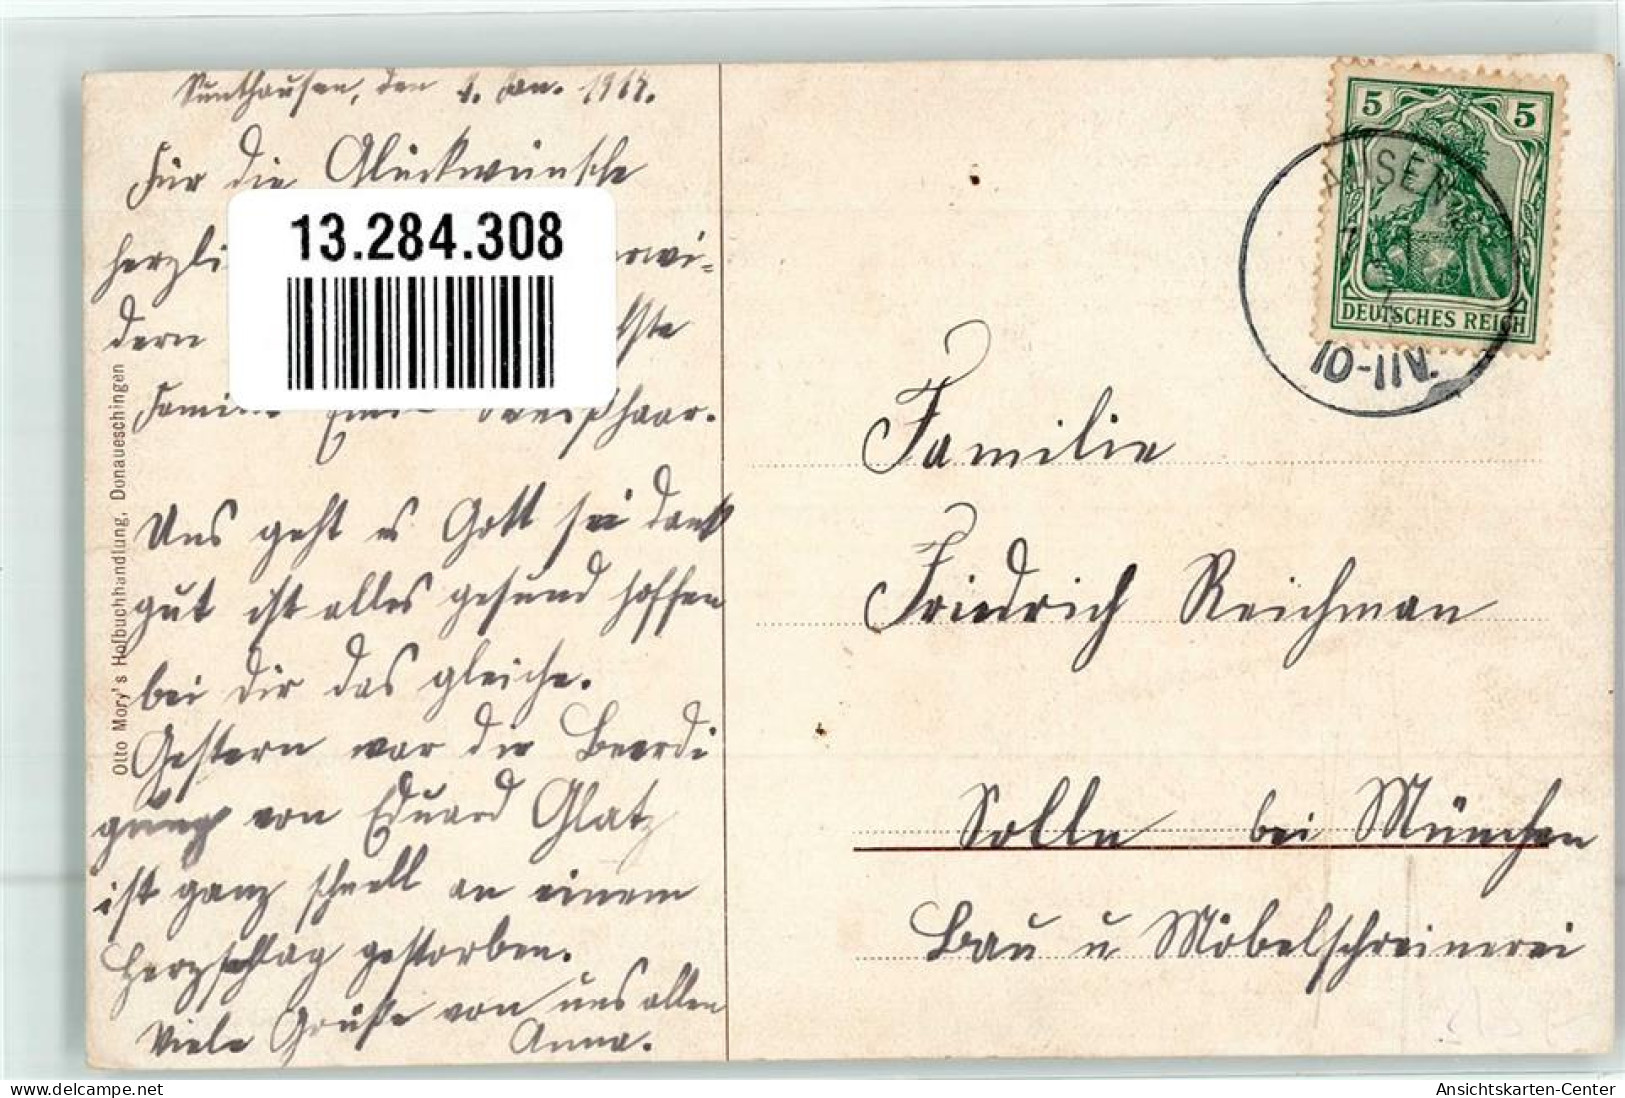 Sunthausen, den 1. Jan. 1914.
Für die Glückwünsche
herzli
erwi=
dern
chste
Familie
Uns geht es Gott sei dank
gut ist alles gesund hoffen
bei dir das gleiche.
Gestern war die Beerdi
gung von Eduard Glatz
ist ganz schnell an einem
Herzschlag gestorben.
Viele Grüße von uns allen
Anna.
13.284.308
Otto Mory's Hofbuchhandlung, Donaueschingen
5 5
DEUTSCHES REICH
AUSEN
10-11V.
Familie
Friedrich Reichman
Solln bei München
Bau u Möbelschreinerei
delcampe.net
Ansichtskarten-Center